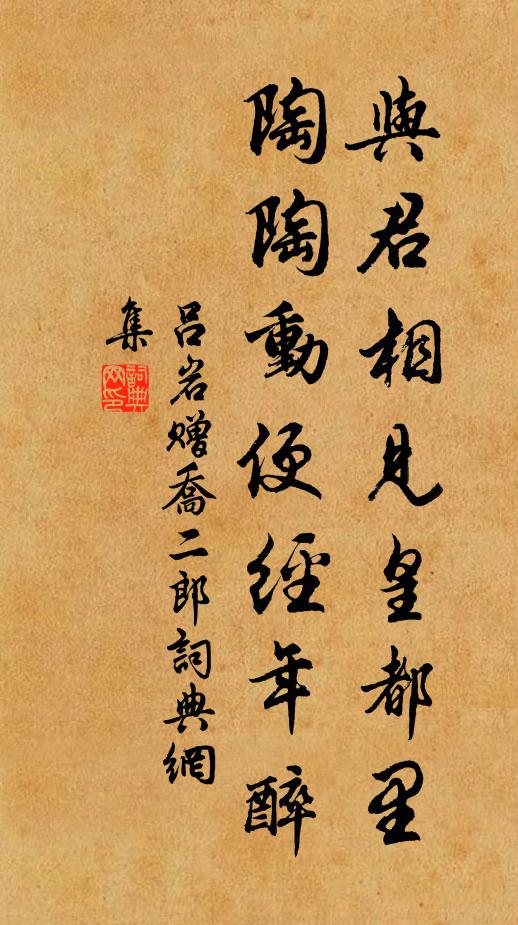 與君相見皇都里
陶陶動便經年醉
吕岩贈喬二郎詞典網
集
詞典
网印